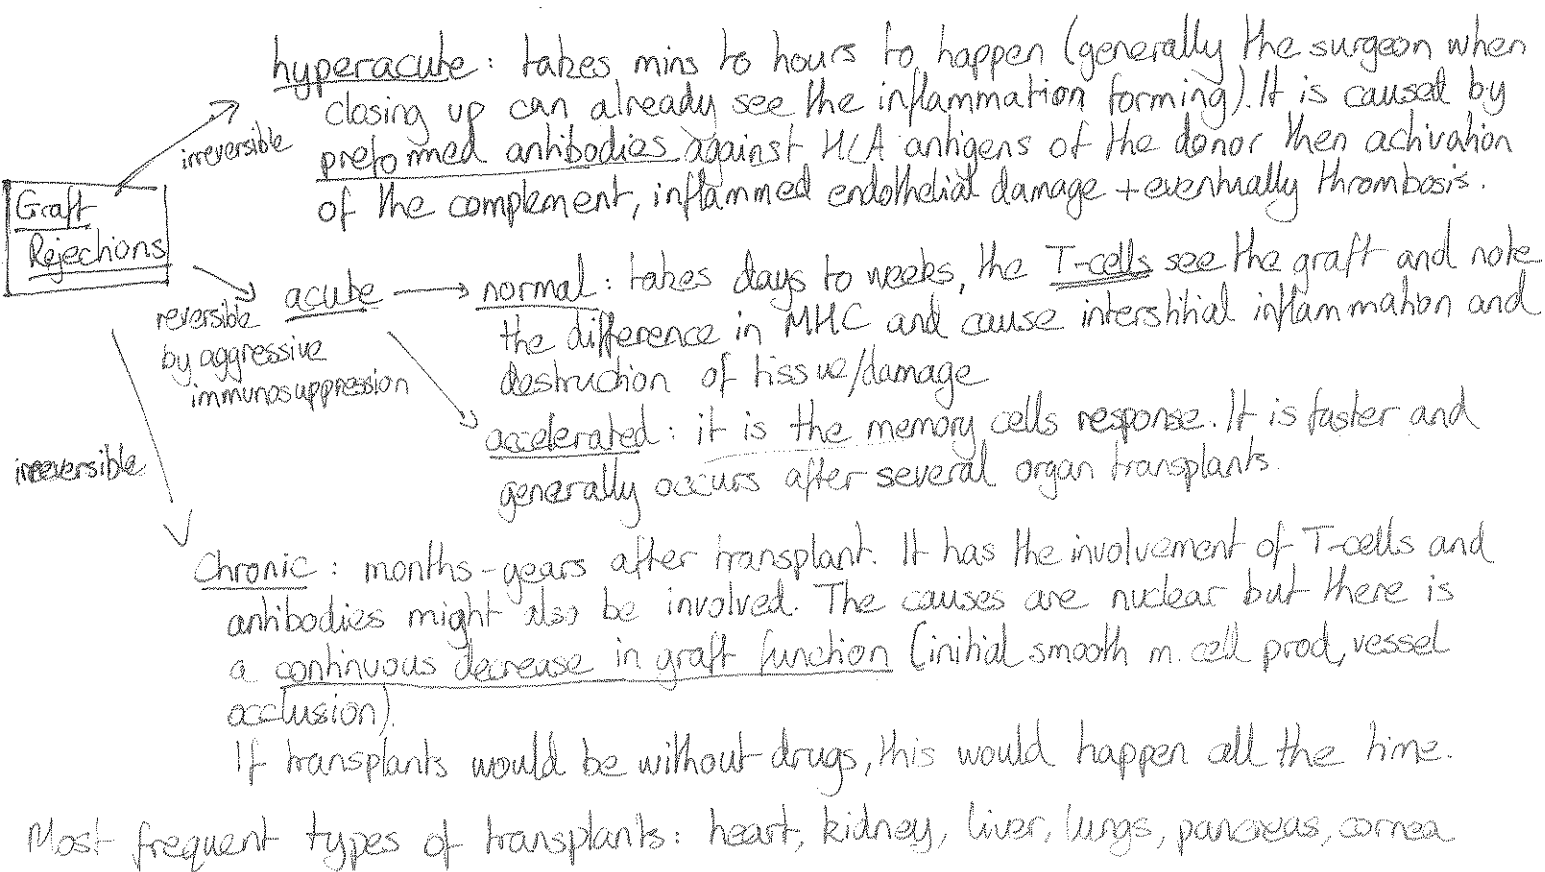 hyperacute : takes mins to hours to happen (generally the surgeon when
closing up can already see the inflammation forming). It is caused by
preformed antibodies against HLA antigens of the donor then activation
of the complement, inflammed endothelial damage + eventually thrombosis.
irreversible
Graft
Rejections
acute
reversible
by aggressive
immunosuppression
normal : takes days to weeks, the T-cells see the graft and note
the difference in MHC and cause interstitial inflammation and
destruction of tissue/damage
accelerated : it is the memory cells response. It is faster and
generally occurs after several organ transplants.
irreversible
Chronic : months-years after transplant. It has the involvement of T-cells and
antibodies might also be involved. The causes are nuclear but there is
a continuous decrease in graft function (initial smooth m. cell prod, vessel
occlusion).
If transplants would be without drugs, this would happen all the time.
Most frequent types of transplants: heart, kidney, liver, lungs, pancreas, cornea